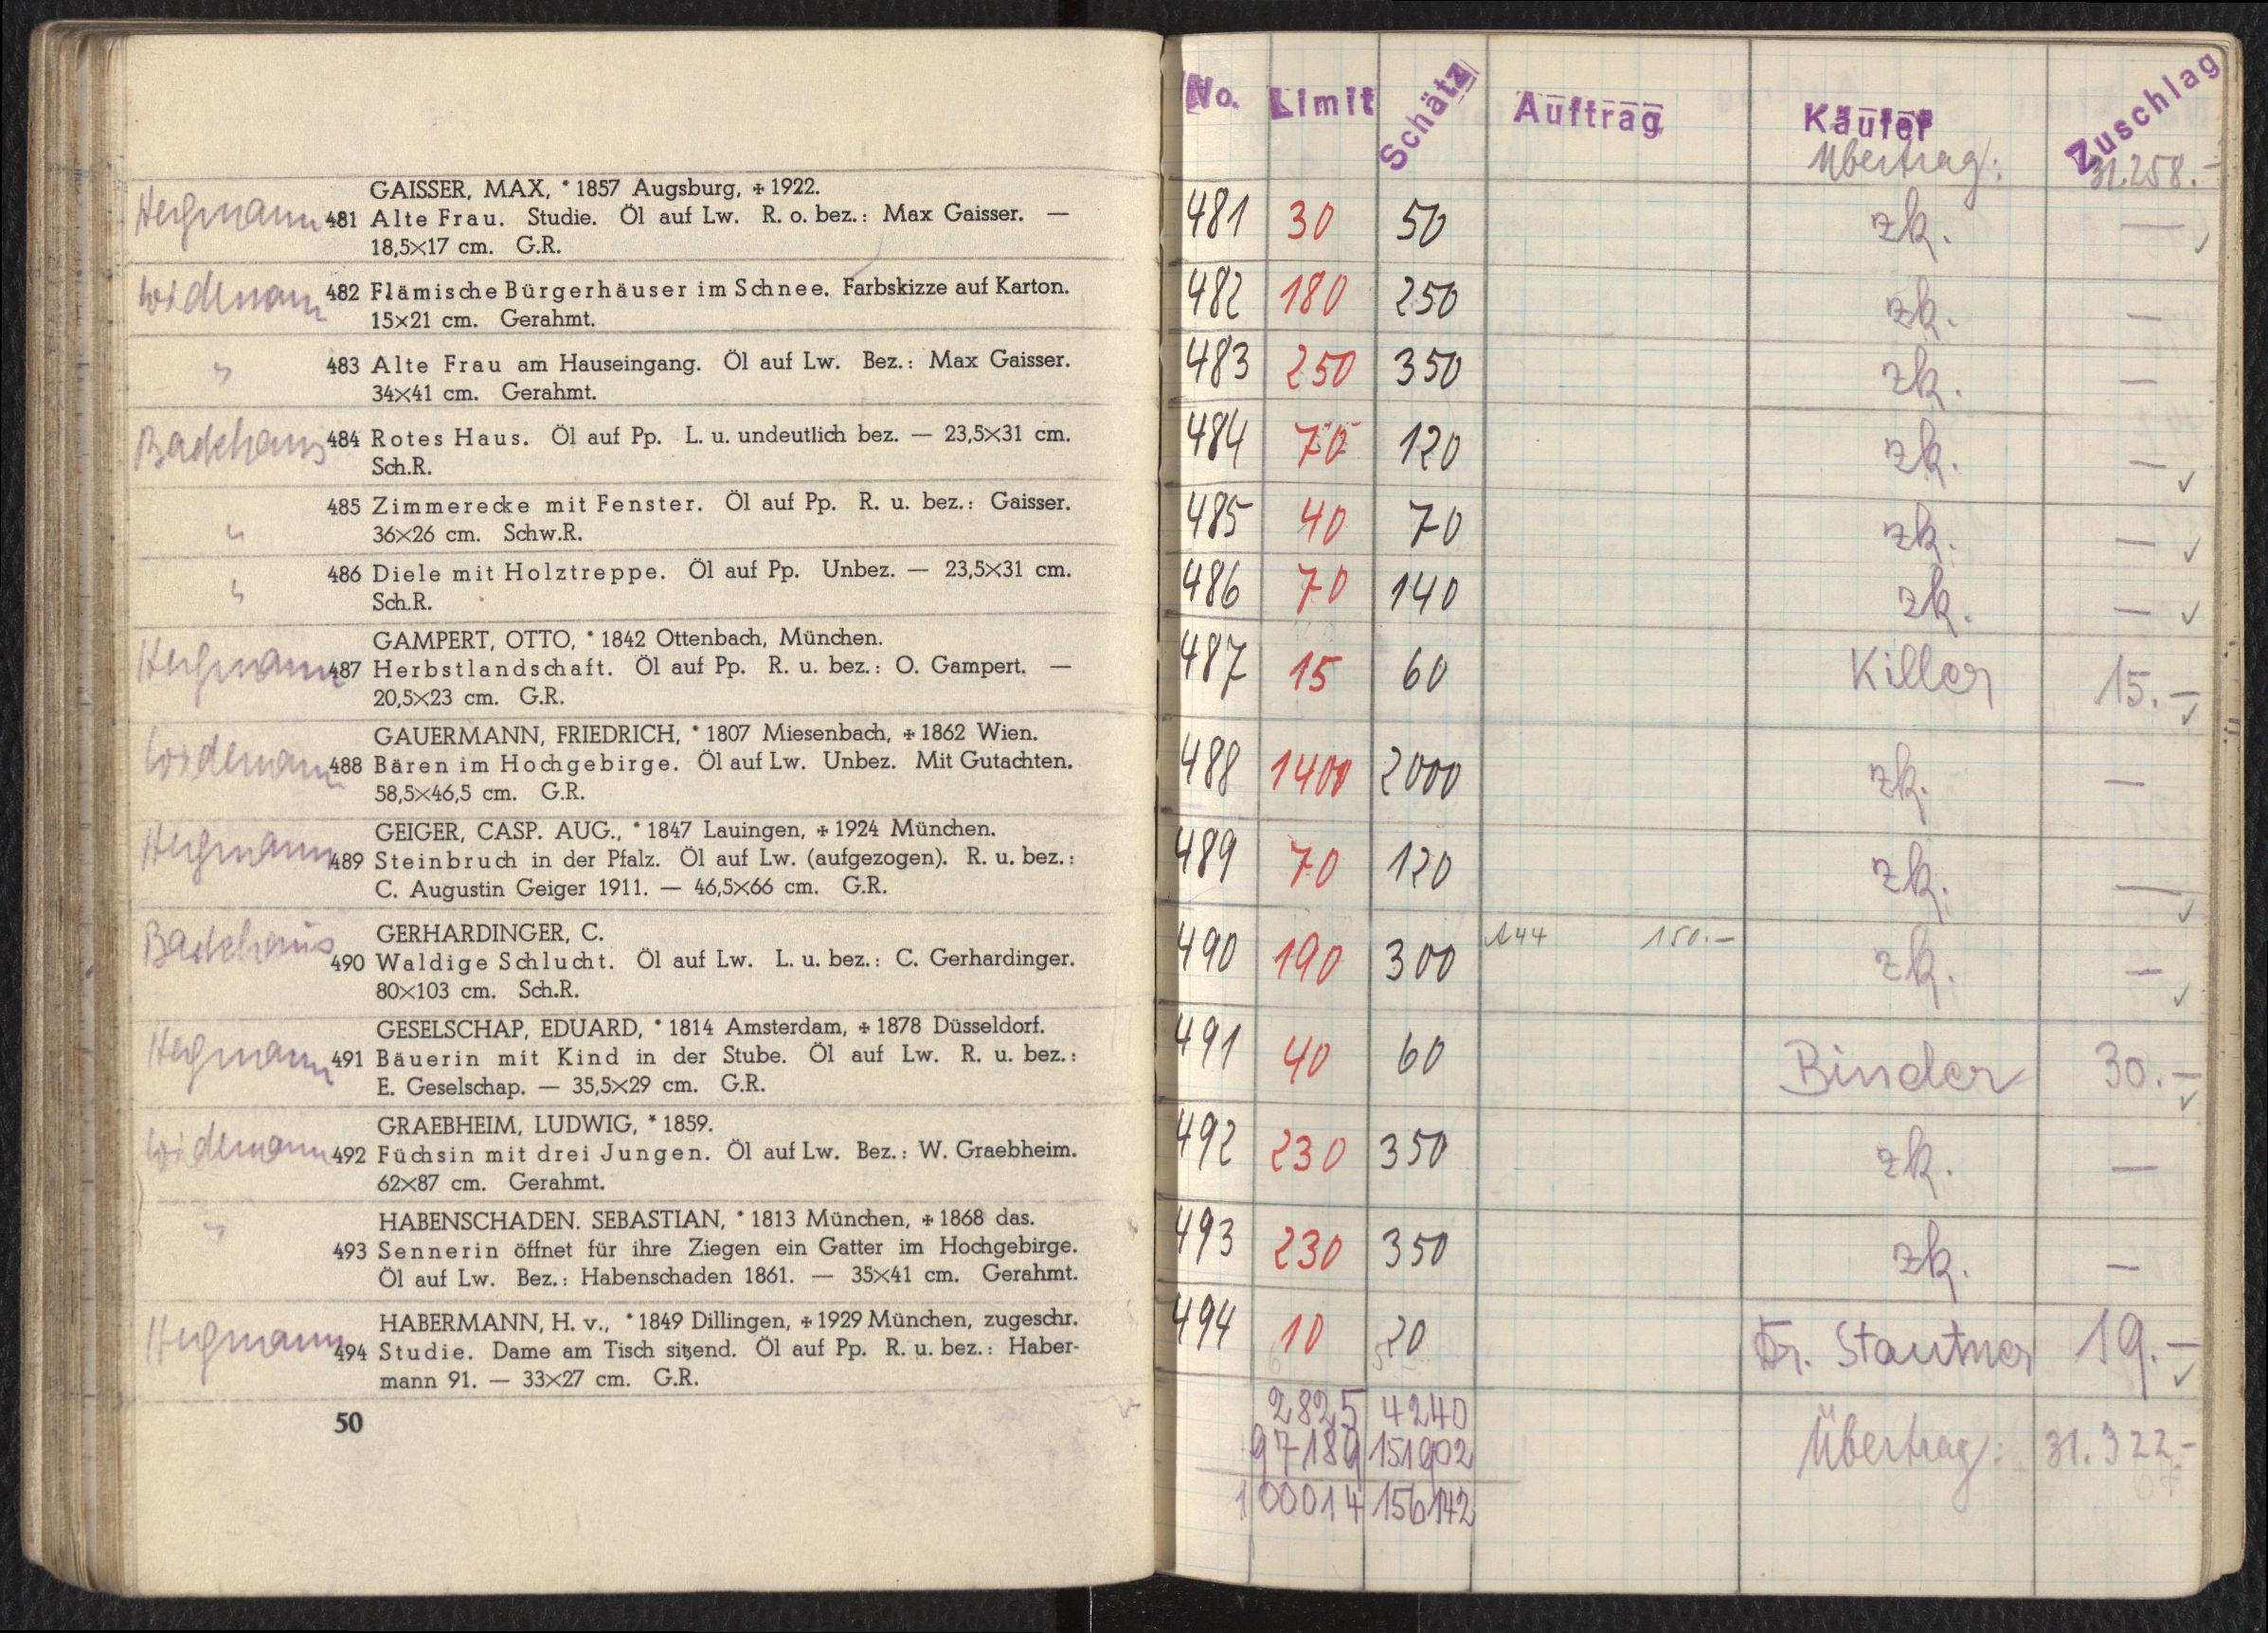 GAISSER, MAX, * 1857 Augsburg, + 1922.
Hergmann 481 Alte Frau. Studie. Öl auf Lw. R. o. bez.: Max Gaisser. —
18,5×17 cm. G.R.
Widemann 482 Flämische Bürgerhäuser im Schnee. Farbskizze auf Karton.
15×21 cm. Gerahmt.
" 483 Alte Frau am Hauseingang. Öl auf Lw. Bez.: Max Gaisser.
34×41 cm. Gerahmt.
Backhaus 484 Rotes Haus. Öl auf Pp. L. u. undeutlich bez. — 23,5×31 cm.
Sch.R.
485 Zimmerecke mit Fenster. Öl auf Pp. R. u. bez.: Gaisser.
" 36×26 cm. Schw.R.
486 Diele mit Holztreppe. Öl auf Pp. Unbez. — 23,5×31 cm.
" Sch.R.
GAMPERT, OTTO, * 1842 Ottenbach, München.
Hergmann 487 Herbstlandschaft. Öl auf Pp. R. u. bez.: O. Gampert. —
20,5×23 cm. G.R.
GAUERMANN, FRIEDRICH, * 1807 Miesenbach, + 1862 Wien.
Widemann 488 Bären im Hochgebirge. Öl auf Lw. Unbez. Mit Gutachten.
58,5×46,5 cm. G.R.
GEIGER, CASP. AUG., * 1847 Lauingen, + 1924 München.
Hergmann 489 Steinbruch in der Pfalz. Öl auf Lw. (aufgezogen). R. u. bez.:
C. Augustin Geiger 1911. — 46,5×66 cm. G.R.
GERHARDINGER, C.
Backhaus 490 Waldige Schlucht. Öl auf Lw. L. u. bez.: C. Gerhardinger.
80×103 cm. Sch.R.
GESELSCHAP, EDUARD, * 1814 Amsterdam, + 1878 Düsseldorf.
Hergmann 491 Bäuerin mit Kind in der Stube. Öl auf Lw. R. u. bez.:
E. Geselschap. — 35,5×29 cm. G.R.
GRAEBHEIM, LUDWIG, * 1859.
Widemann 492 Füchsin mit drei Jungen. Öl auf Lw. Bez.: W. Graebheim.
62×87 cm. Gerahmt.
" HABENSCHADEN. SEBASTIAN, * 1813 München, + 1868 das.
493 Sennerin öffnet für ihre Ziegen ein Gatter im Hochgebirge.
Öl auf Lw. Bez.: Habenschaden 1861. — 35×41 cm. Gerahmt.
HABERMANN, H. v., * 1849 Dillingen, + 1929 München, zugeschr.
Hergmann 494 Studie. Dame am Tisch sitzend. Öl auf Pp. R. u. bez.: Haber-
mann 91. — 33×27 cm. G.R.
50
No. Limit Schätz Auftrag Käufer Zuschlag
Übertrag: 31.258.-
481 30 50 zk. — ✓
482 180 250 zk. —
483 250 350 zk. —
484 70 120 zk. — ✓
485 40 70 zk. — ✓
486 70 140 zk. — ✓
487 15 60 Killer 15.— ✓
488 1400 2000 zk. —
489 70 120 zk. — ✓
490 190 300 144 150.— zk. — ✓
491 40 60 Binder 30.— ✓
492 230 350 zk. —
493 230 350 zk. —
494 10 20 Dr. Stautner 19.— ✓
2825 4240
97189 151902
Übertrag: 31.322-
100014 156142